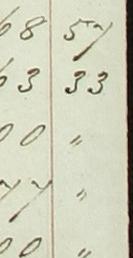 68 57
63 33
00 "
77 "
00 "